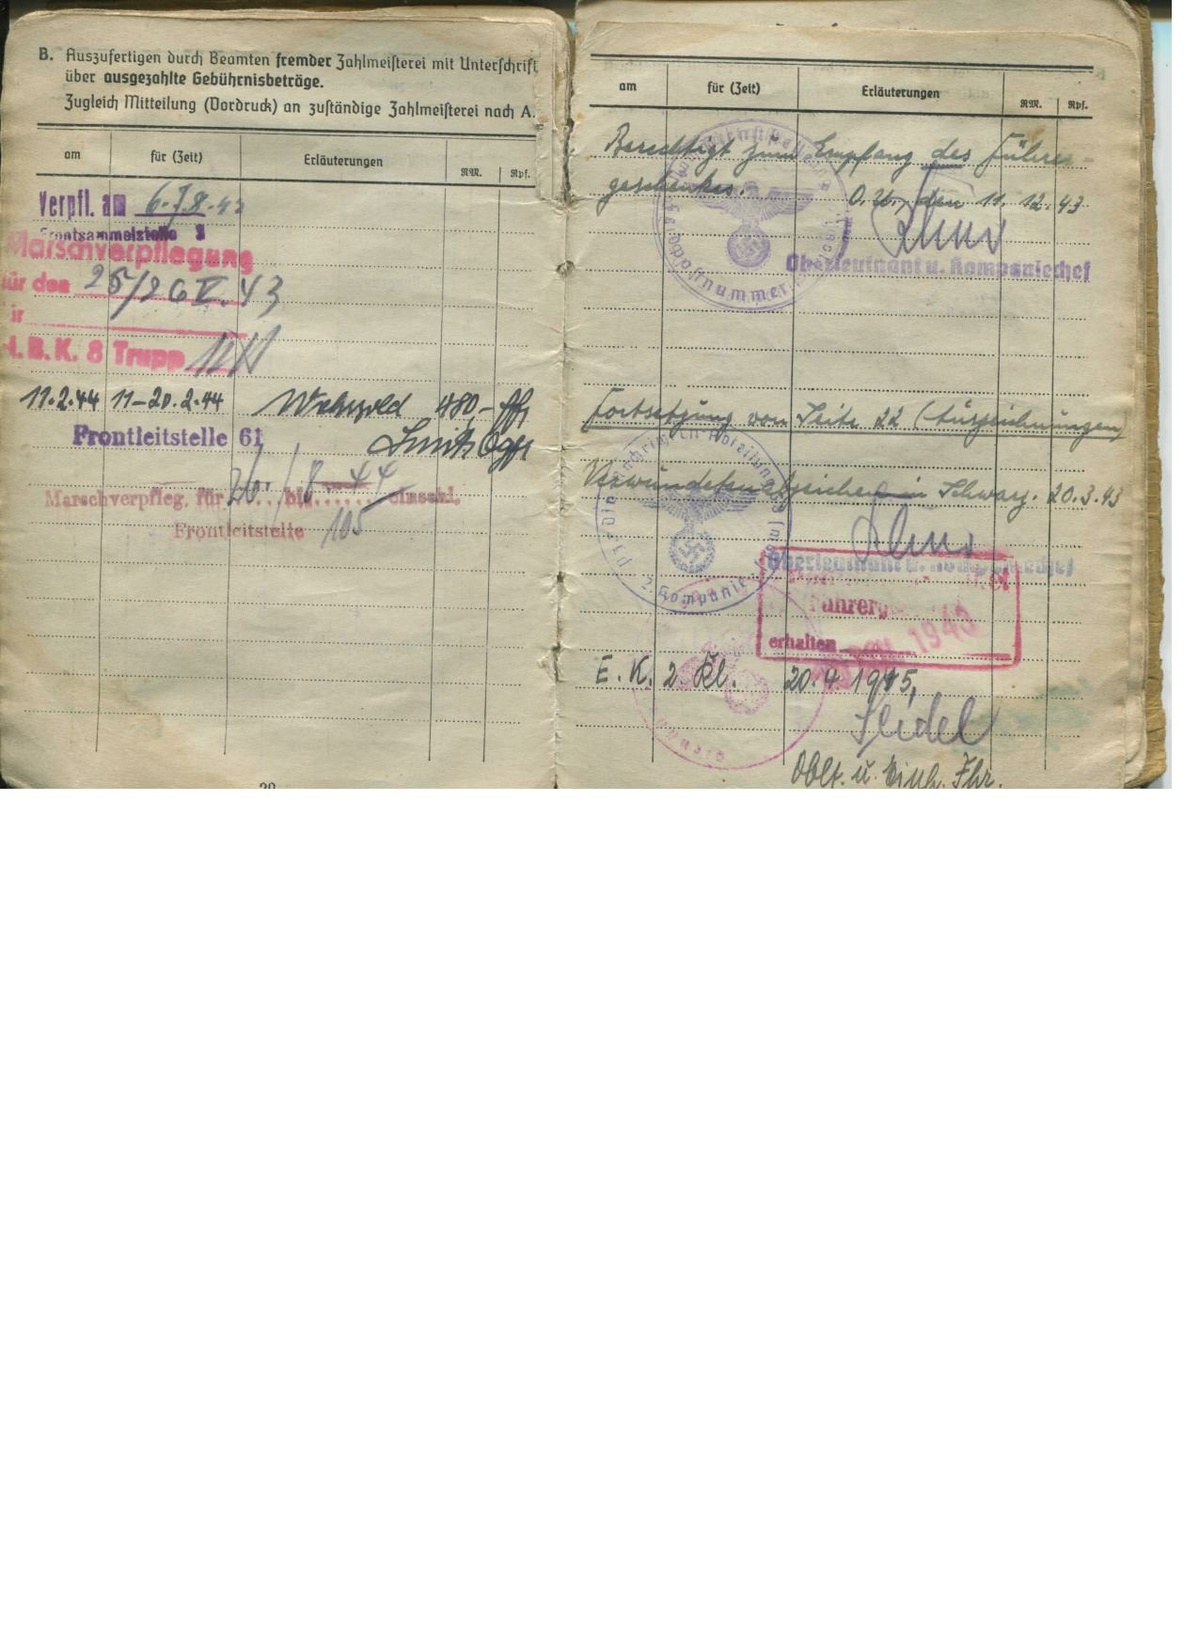 B. Auszufertigen durch Beamten fremder Zahlmeisterei mit Unterschrift
über ausgezahlte Gebührnisbeträge.
Zugleich Mitteilung (Vordruck) an zuständige Zahlmeisterei nach A.
am für (Zeit) Erläuterungen RM. Rpf.
Verpfl. am
Frontsammelstelle
Marschverpflegung
für den 25/26 V. 43
H.B.K. 8 Trupp
11.2.44 11-20.2.44 Wehrsold 480,- ffr
Frontleitstelle 61
Marschverpfleg. für bis einschl.
Frontleitstelle 105
am für (Zeit) Erläuterungen RM. Rpf.
Berechtigt zum Empfang des Führer-
geschenkes. O.U., den 11.12.43
Oberleutnant u. Kompaniechef
Feldpostnummer
Fortsetzung von Seite 22 (Auszeichnungen)
Verwundetenabzeichen in Schwarz. 20.3.43
2. Kompanie
Oberleutnant u. Kompaniechef
erhalten 1943
E.K. 2. Kl. 20.4.1945.
Seidel
Oblt. u. Einh. Fhr.